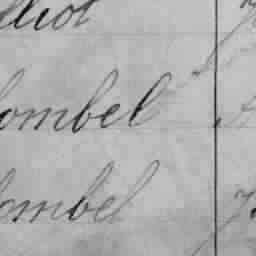 lliot
ombel
ombel